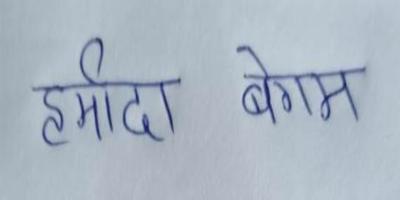 हमीदा बेगम